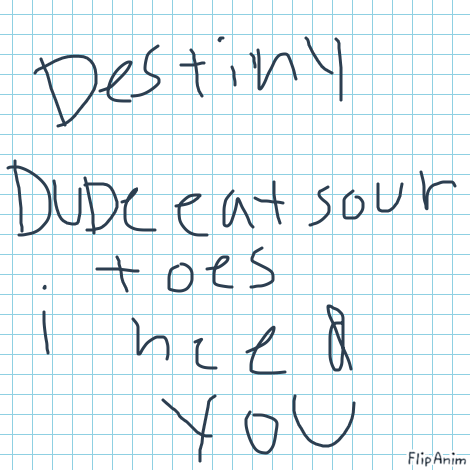 Destiny
DUDE eat sour
toes
i need
YOU
FlipAnim